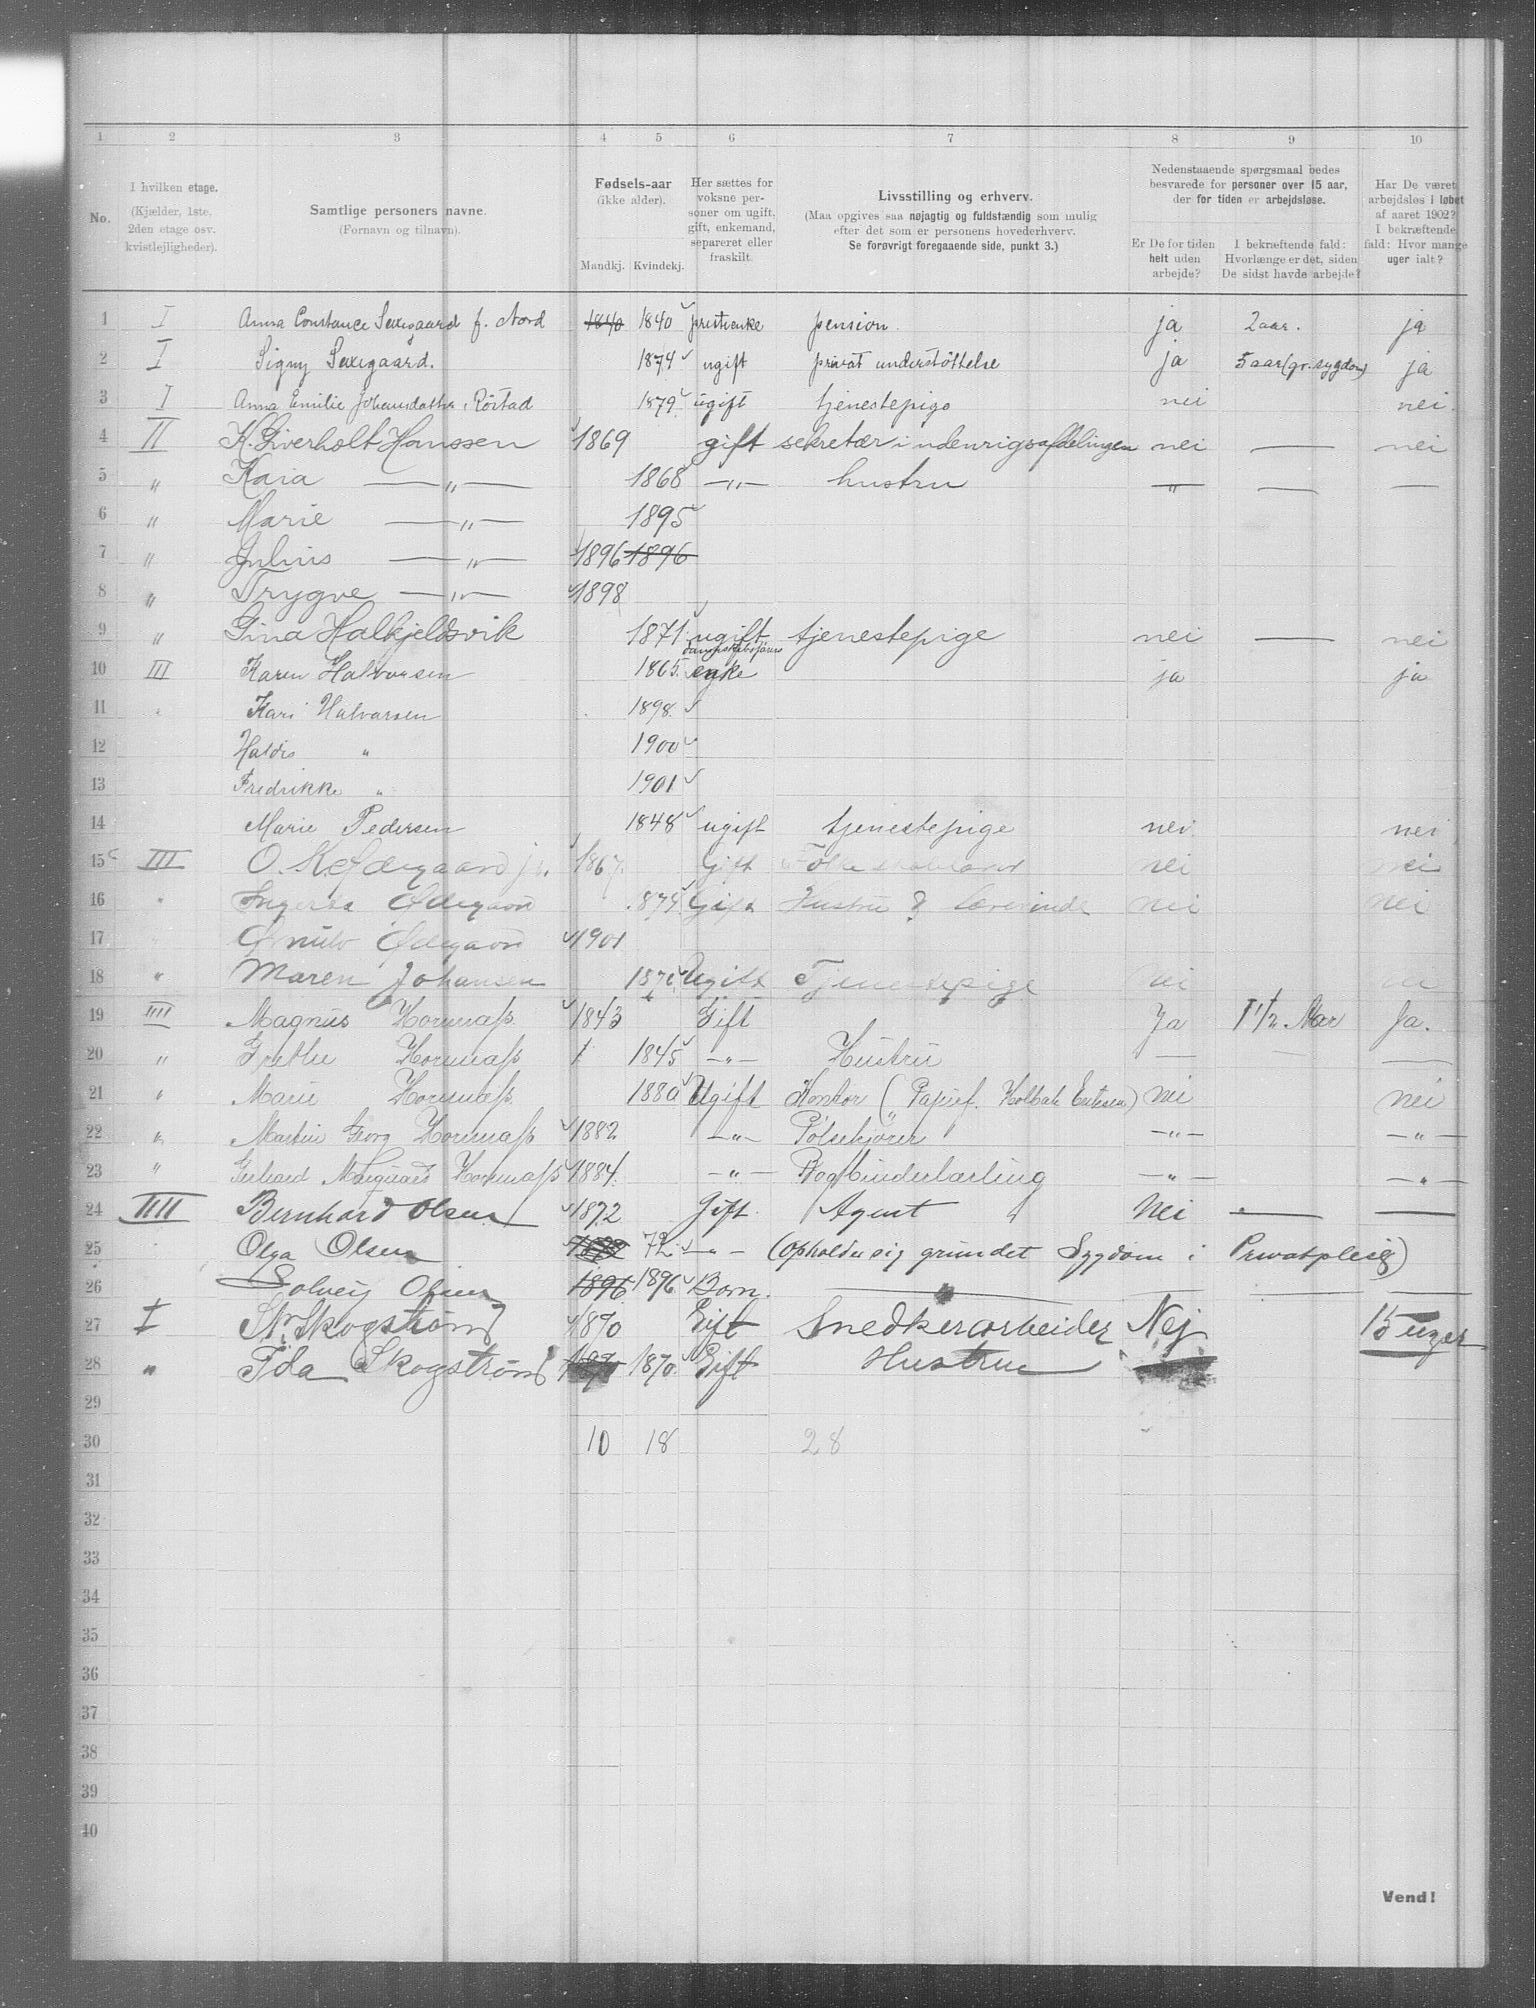 1 2 3 4 5 6 7 8 9 10
No.
I hvilken etage.
(Kjælder, 1ste,
2den etage osv.
kvistlejligheder).
Samtlige personers navne.
(Fornavn og tilnavn).
Fødsels-aar
(ikke alder).
Mandkj. Kvindekj.
Her sættes for
voksne per-
soner om ugift,
gift, enkemand,
separeret eller
fraskilt.
Livsstilling og erhverv.
(Maa opgives saa nøjagtig og fuldstændig som mulig
efter det som er personens hovederhverv.
Se forøvrigt foregaaende side, punkt 3.)
Nedenstaaende spørgsmaal bedes
besvarede for personer over 15 aar,
der for tiden er arbejdsløse.
Er De for tiden
helt uden
arbejde?
I bekræftende fald:
Hvorlænge er det, siden
De sidst havde arbejde?
Har De været
arbejdsløs i løbet
af aaret 1902?
I bekræftende
fald: Hvor mange
uger ialt?
1 I Anna Constance Saxegaard f. Nord 1840 1840 prestenke pension. ja 2 aar. ja
2 I Signy Saxegaard. 1874 ugift privat understøttelse ja 5 aar (gr. sygdom) ja
3 I Anna Emilie Johansdatter Röstad 1879 ugift tjenestepige nei nei.
4 II K. Siverholt Hanssen 1869 gift sekretær i udenrigsafdelingen nei — nei
5 " Kaia — " — 1868 — " — hustru — " — — —
6 " Marie — " — 1895
7 " Julius — " — 1896 1896
8 " Trygve — " — 1898
9 " Gina Halkjeldsvik 1871 ugift tjenestepige nei — nei
10 III Karen Halvorsen 1865 enke ja ja
11 " Kari Halvorsen 1898
12 Haldis " 1900
13 Fredrikke " 1901
14 Marie Pedersen 1848 ugift tjenestepige nei nei
15 III O. K. Ødegaard jr. 1867. Gift nei nei
16 " Ødegaard 1874 Gift Hustru & Lærerinde nei nei
17 Ørnulv Ødegaard 1901
18 " Maren Johansen Ugift Tjenestepige
19 IIII Magnus Hornnæss 1843 Gift Ja 1 1/2 Aar Ja.
20 " Grethe Hornnæss 1 1845 — " — Hustru — — —
21 " Marie Hornnæss 1880 Ugift Kontor (Papirf. Eriksen) nei nei
22 " Martin Georg Hornnæss 1882 — " — Pølsekjører — " — — " —
23 " Gerhard Hornnæss 1884. — " — Bogbinderlærling — " — — " —
24 IIII Bernhard Olsen 1872 Gift. Agent Nei — —
25 Olga Olsen 72 — " — (opholder sig grundet Sygdom i Privatpleie)
26 Solveig Olsen 1896 1896 Barn. —
27 I Skogstrøm 1870 Gift Snedkerarbeider Nej 15 uger
28 " Ida Skogstrøm 1870 1870. Gift Hustru
29
30 10 18 28
31
32
33
34
35
36
37
38
39
40
Vend!